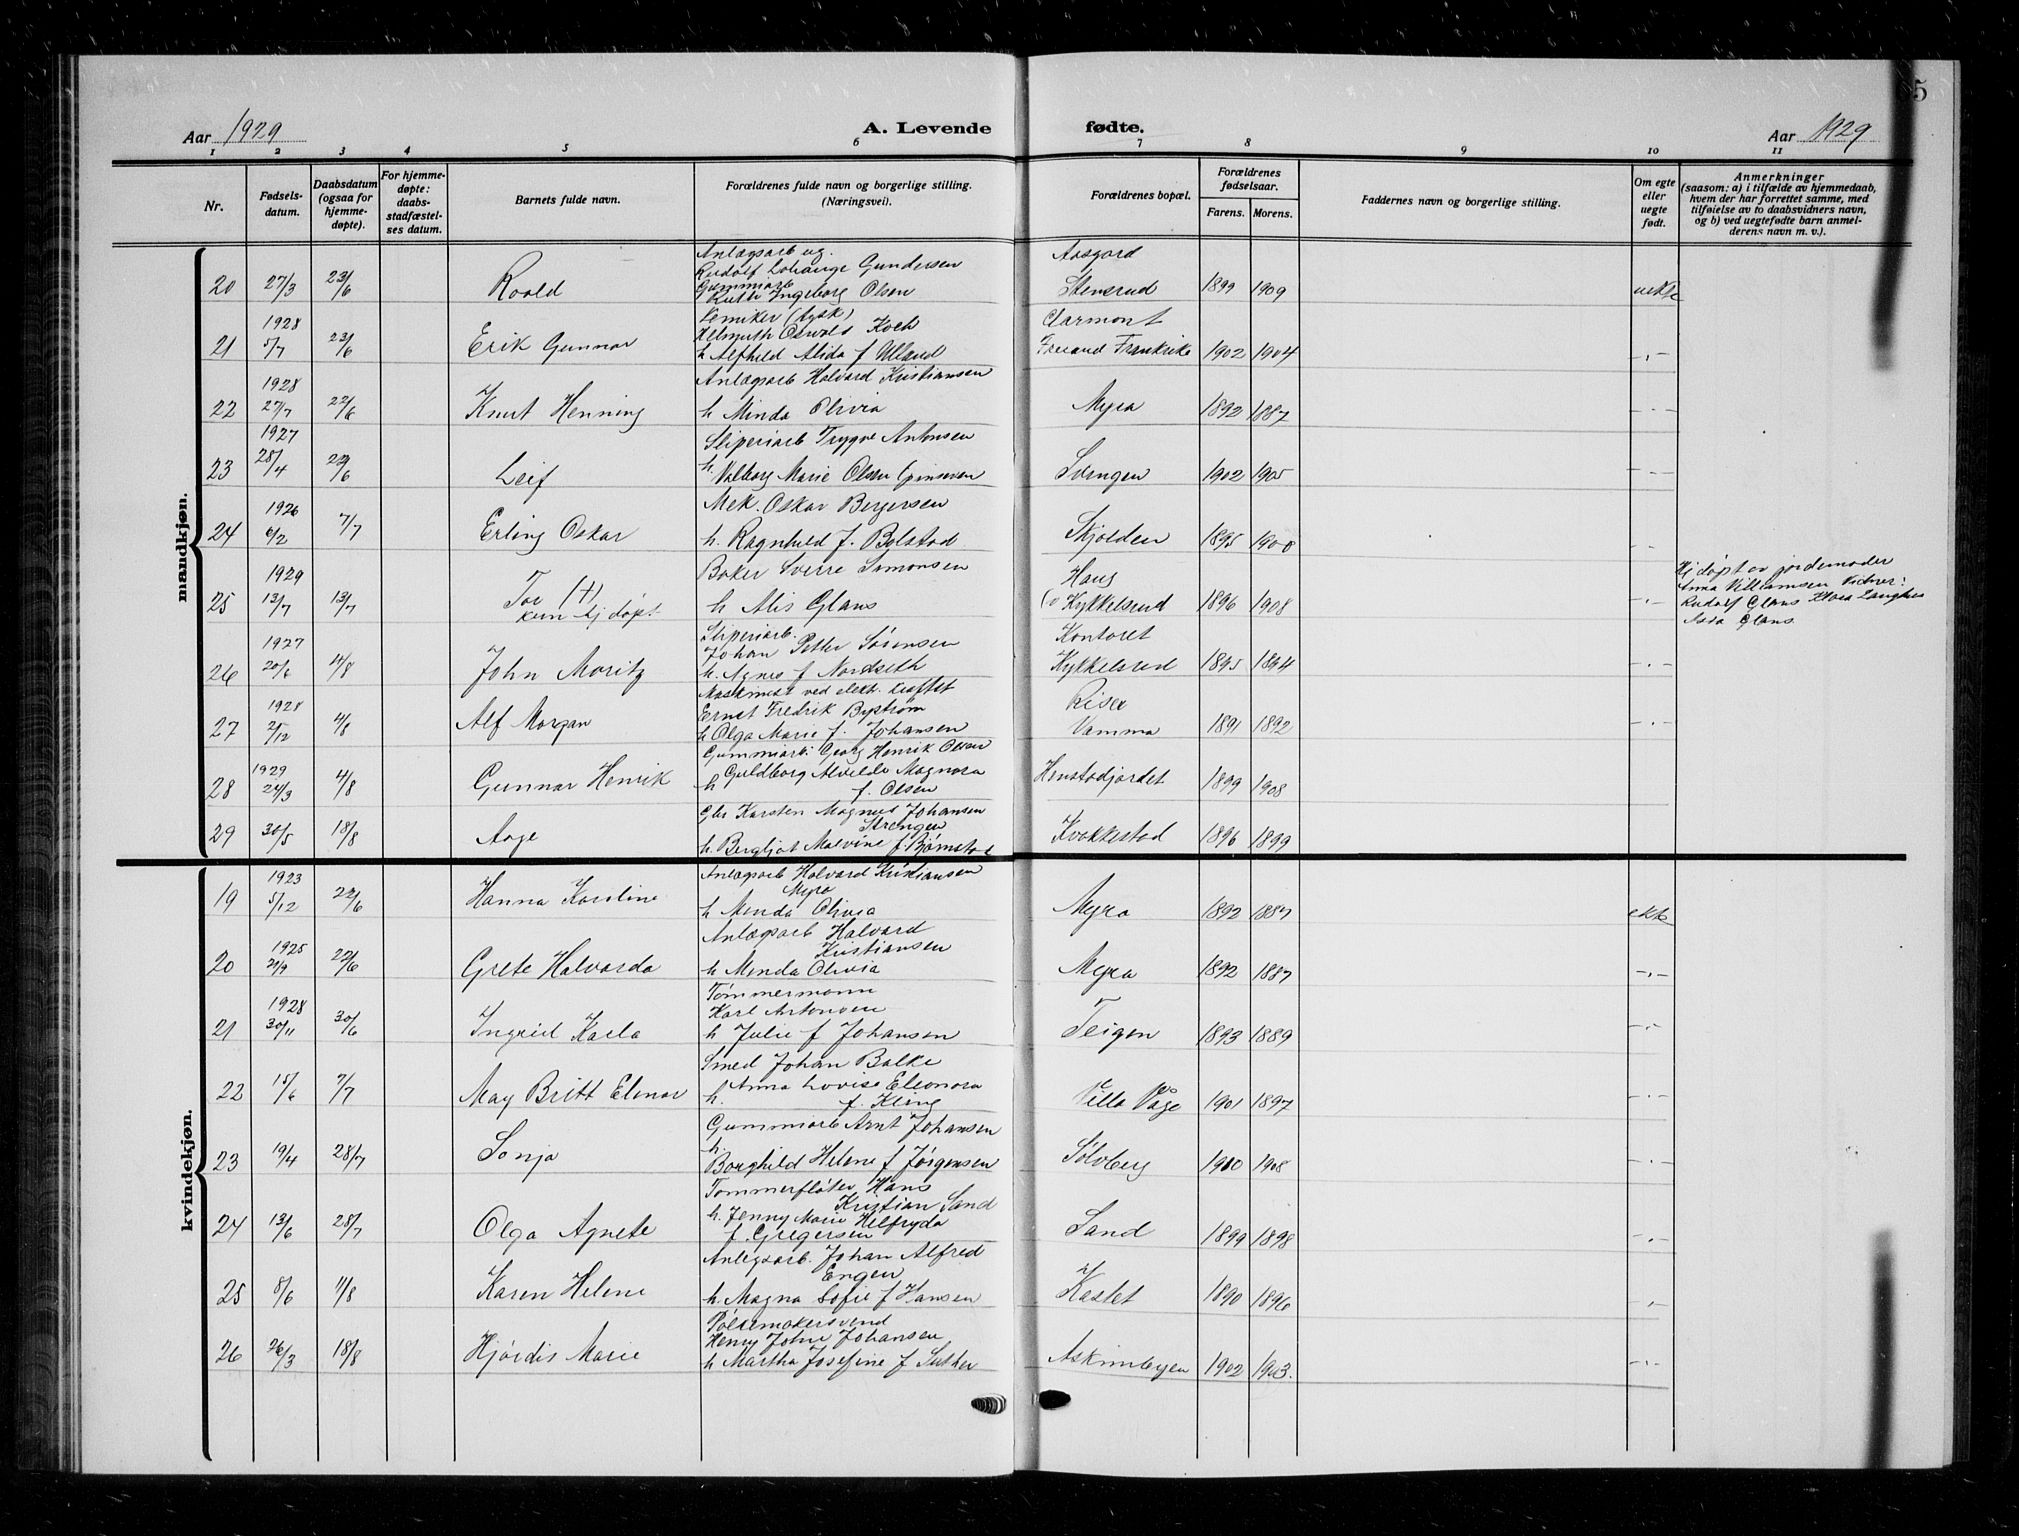 5
Aar 1929
A. Levende
fødte.
Aar 1929
1 2 3 4 5 6 7 8 9 10 11
Nr.
Fødsels-
datum.
Daabsdatum
(ogsaa for
hjemme-
døpte).
For hjemme-
døpte:
daabs-
stadfæstel-
ses datum.
Barnets fulde navn.
Forældrenes fulde navn og borgerlige stilling.
(Næringsvei).
Forældrenes bopæl.
Forældrenes
fødselsaar.
Farens. Morens.
Faddernes navn og borgerlige stilling.
Om egte
eller
uegte
født.
Anmerkninger
(saasom: a) i tilfælde av hjemmedaab,
hvem der har forrettet samme, med
tilføielse av to daabsvidners navn,
og b) ved uegtefødte barn anmel-
derens navn m. v.).
mandkjøn.
Anlægsarb ug.
Rudolf Gundersen
Gummiarb
20 27/3 23/6 Roald Ruth Ingeborg Olsen
Aasgard
Stensrud 1899 1909 uekte
Kemiker (tysk)
1928 Helmuth Osvald Koch
21 5/7 23/6 Erik Gunnar h Alfhild Alida f Ulland
Clarmont
Frankrike 1902 1904 -,-
1928 Anlægsarb Halvard Kristiansen
22 27/7 22/6 Knut Henning h Minda Olivia Myra 1892 1887 -,-
1927 Sliperiarb Trygve Antonsen
23 28/4 22/6 Leif h. Valborg Marie Olsen Svingen 1902 1905 -,-
1926 Mek. Oskar Bergersen
24 6/2 7/7 Erling Oskar h. Ragnhild f. Bolstad Skjolden 1895 1900 -,-
1929 Baker Sverre Simonsen
25 13/7 13/7 Tor (†) h Alis Glans
kun hj døpt
Haug
Kykkelsrud 1896 1908 -,-
Hj døpt av jordemoder
Anna Villiamsen Vidner:
Rudolf Glans Klara
Asta Glans
Sliperiarb.
1927 Johan Petter Sørensen
26 20/6 14/8 John Moritz h. Agnes f Nordseth
Kontoret
Kykkelsrud 1895 1894 -,-
Maskinist ved elektr. kraftst
1928 Ernst Fredrik Bystrøm
27 25/12 4/8 Alf Morgan h Olga Marie f. Johansen
Riser
Vamma 1891 1892 -,-
Gummiarb. Georg Henrik Olsen
1929 h Guldborg Alvilde Magnora
28 24/3 4/8 Gunnar Henrik f. Olsen Henstadjordet 1899 1908
Karsten Magnus Johansen
Strengen
29 30/5 18/8 Aage h. Bergljot Malvine f. Bjørnstad Kvakkestad 1896 1899
kvindekjøn.
Anlægsarb Halvard Kristiansen
1923 Myra
19 5/12 22/6 Hanna Karoline h Minda Olivia Myra 1892 1887 ekte
Anlægsarb Halvard
1925 Kristiansen
20 21/9 22/6 Grete Halvarda h Minda Olivia Myra 1892 1887 -,-
Tømmermann
1928 Karl Antonsen
21 30/11 30/6 Ingrid Karla h Julie f Johansen Teigen 1893 1889 -,-
Smed Johan Balke
h. Anna Lovise Eleonora
22 15/6 7/7 May Britt Elinor f. Kling Villa Våge 1901 1897 -,-
Gummiarb Arnt Johansen
h.
23 19/4 28/7 Sonja Borghild Helene f Jørgensen Sølvberg 1900 1908 -,-
Tømmerfløter Hans
Kristian Sand
h. Jenny Marie Helfryda
24 13/6 28/7 Olga Agnete f. Gregersen Sand 1899 1898 -,-
Anlegsarb. Johan Alfred
Engen
25 8/6 11/8 Karen Helene h. Magna Sofie f Hansen Kastet 1890 1896 -,-
Pølsemakersvend
Henry John Johansen
26 26/3 18/8 Hjørdis Marie h Martha Josefine f Sæther Askimbyen 1902 1903. -,-